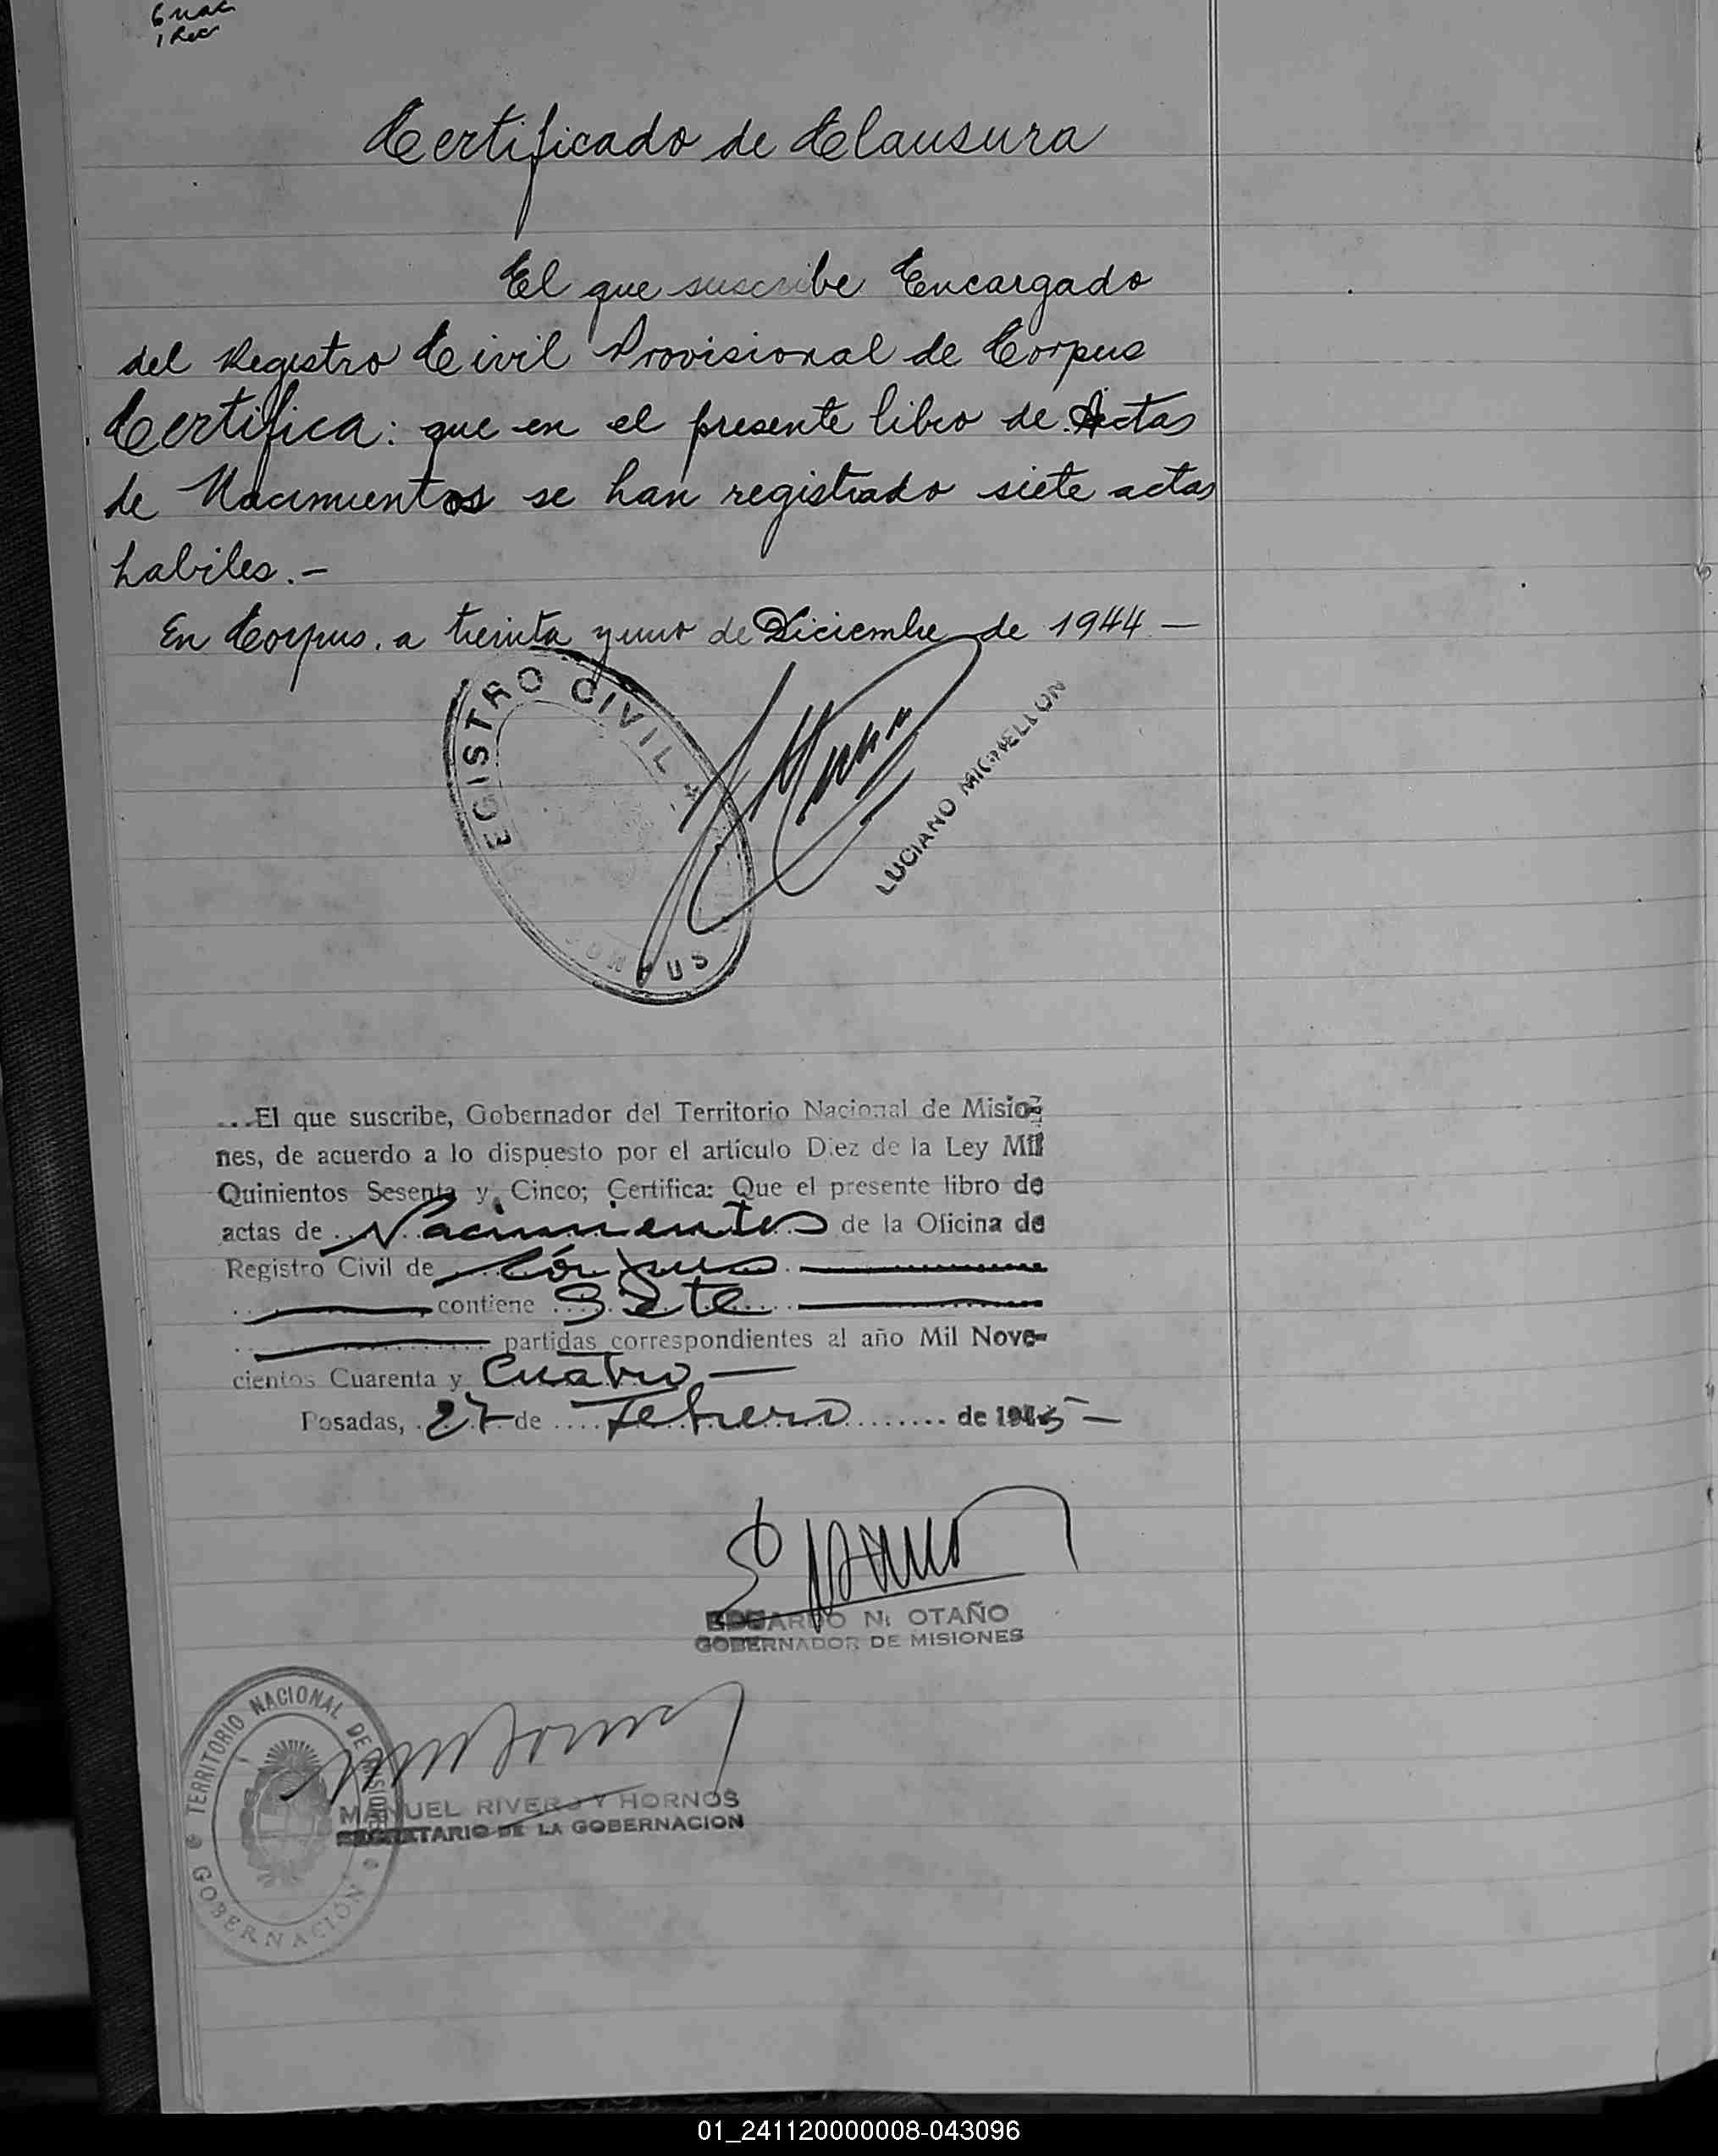 6 nac
1 Rec
Certificado de Clausura
El que suscribe Encargado
del Registro Civil Provisional de Corpus
Certifica: que en el presente libro de Actas
de Nacimientos se han registrado siete actas
habiles.-
En Corpus, a treinta y uno de Diciembre de 1944 -
REGISTRO CIVIL
CORPUS
LUCIANO MIGUELLON
...El que suscribe, Gobernador del Territorio Nacional de Misio-
nes, de acuerdo a lo dispuesto por el artículo Diez de la Ley Mil
Quinientos Sesenta y Cinco; Certifica: Que el presente libro de
actas de Nacimientos de la Oficina de
Registro Civil de Córpus
contiene Siete
partidas correspondientes al año Mil Nove-
cientos Cuarenta y Cuatro -
Posadas, 27 de Febrero de 1945 -
EDUARDO N. OTAÑO
GOBERNADOR DE MISIONES
TERRITORIO NACIONAL DE MISIONES
GOBERNACIÓN
MANUEL RIVERO Y HORNOS
SECRETARIO DE LA GOBERNACION
01_241120000008-043096